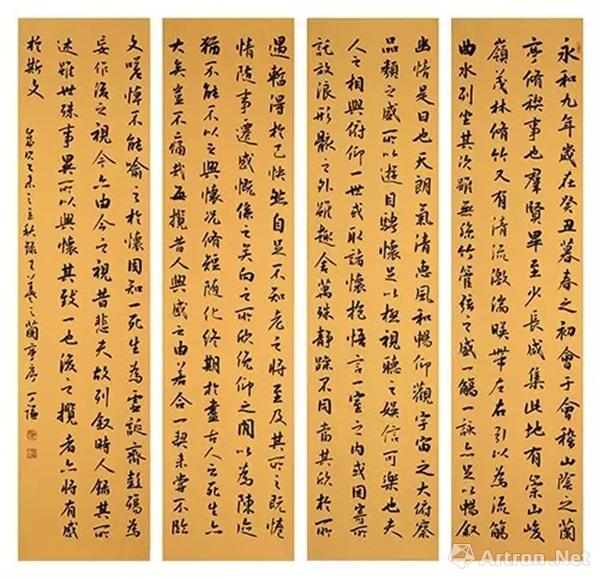 永和九年歲在癸丑暮春之初會于會稽山陰之蘭
亭脩禊事也羣賢畢至少長咸集此地有崇山峻
嶺茂林脩竹又有清流激湍暎帶左右引以為流觴
曲水列坐其次雖無絲竹管弦之盛一觴一詠亦足以暢敘
幽情是日也天朗氣清惠風和暢仰觀宇宙之大俯察
品類之盛所以遊目騁懷足以極視聽之娛信可樂也夫
人之相與俯仰一世或取諸懷抱悟言一室之內或因寄所
託放浪形骸之外雖趣舍萬殊靜躁不同當其欣於所
遇暫得於己快然自足不知老之將至及其所之既惓
情隨事遷感慨係之矣向之所欣俛仰之間以為陳迹
猶不能不以之興懷況脩短隨化終期於盡古人云死生亦
大矣豈不痛哉每攬昔人興感之由若合一契未嘗不臨
文嗟悼不能喻之於懷固知一死生為虛誕齊彭殤為
妄作後之視今亦由今之視昔悲夫故列敘時人錄其所
述雖世殊事異所以興懷其致一也後之攬者亦將有感
於斯文
歲次乙未之立秋錄王羲之蘭亭序
Artron.Net